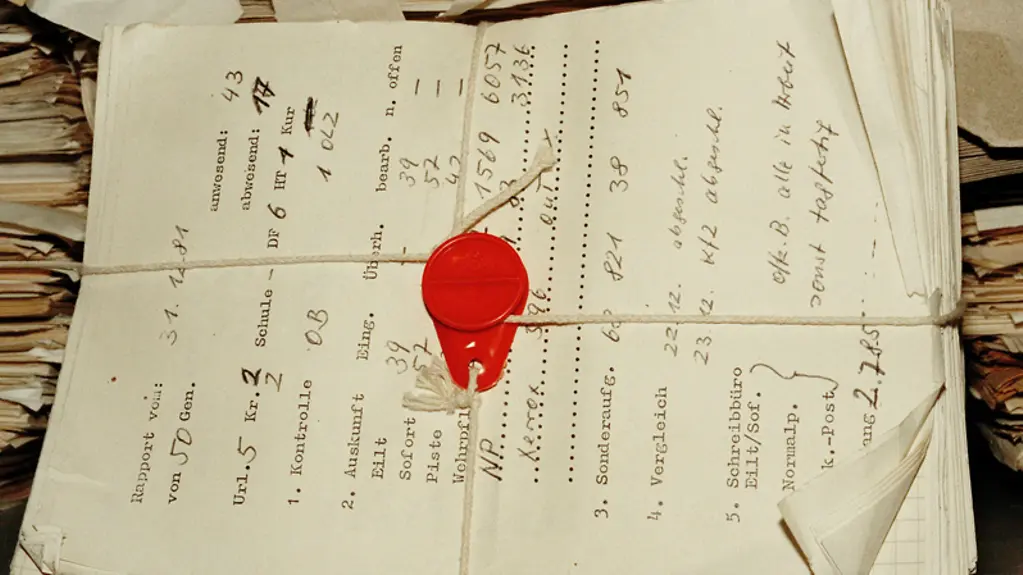 Rapport vom: 31. 12. 81 anwesend: 43
von 50 Gen. abwesend:
Url. 5 Kr. 2 Schule – DF 6 HT 1 Kur
2
1. Kontrolle OB 1 042
2. Auskunft Eing. Überh. bearb. n. offen
Eilt 39 - 39 –
Sofort 57 57 –
Piste 42 –
Wehrpfl
NP 1569 6057
Xerox 3136
3. Sonderaufg. 821 38 851
4. Vergleich 22.12. abgeschl.
23.12. Kf2 abgeschl.
5. Schreibbüro
Eilt/Sof.
Normalp. } Offz. B. alle in Arbeit
k.-Post sonst tagfertig
ang 2.785